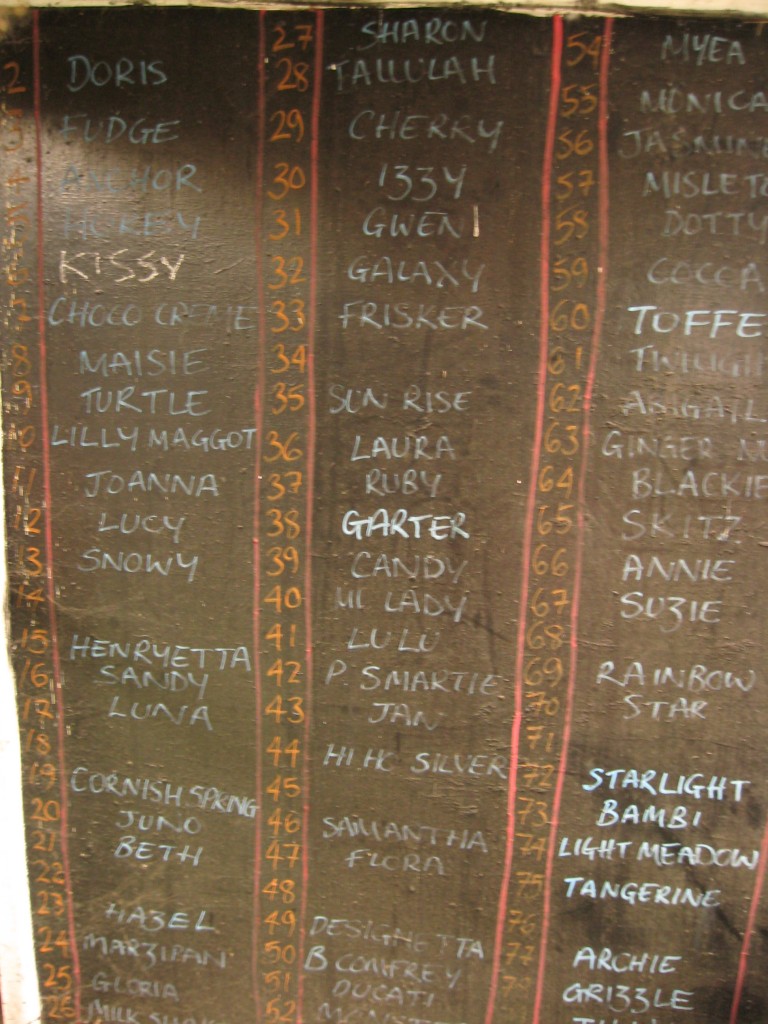 2 DORIS
FUDGE
ANCHOR
KISSY
CHOCO CREME
8 MAISIE
9 TURTLE
LILLY MAGGOT
11 JOANNA
12 LUCY
13 SNOWY
14
15 HENRYETTA
16 SANDY
17 LUNA
18
19 CORNISH SPRING
20 JUNO
21 BETH
22
23 HAZEL
24 MARZIPAN
25 GLORIA
26 MILK
27 SHARON
28 TALLULAH
29 CHERRY
30 IZZY
31 GWEN
32 GALAXY
33 FRISKER
34
35 SUN RISE
36 LAURA
37 RUBY
38 GARTER
39 CANDY
40 LADY
41 LULU
42 P SMARTIE
43 JAN
44 HI HO SILVER
45
46 SAMANTHA
47 FLORA
48
49 DESIGHETTA
50 B COMFREY
51 DUCATI
52
54 MYEA
55 MONICA
56 JASMINE
57 MISLETO
58 DOTTY
59 COCOA
60 TOFFE
61 TWILIGH
62 ABIGAYL
63 GINGER
64 BLACKIE
65 SKITZ
66 ANNIE
67 SUZIE
68
69 RAINBOW
70 STAR
71
72 STARLIGHT
73 BAMBI
74 LIGHT MEADOW
75 TANGERINE
76
77 ARCHIE
GRIZZLE